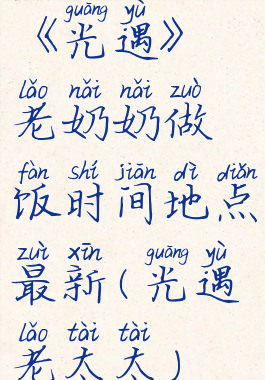 guāng yù
《光遇》
lǎo nǎi nǎi zuò
老奶奶做
fàn shí jiān dì diǎn
饭时间地点
zuì xīn guāng yù
最新(光遇
lǎo tài tài
老太太)